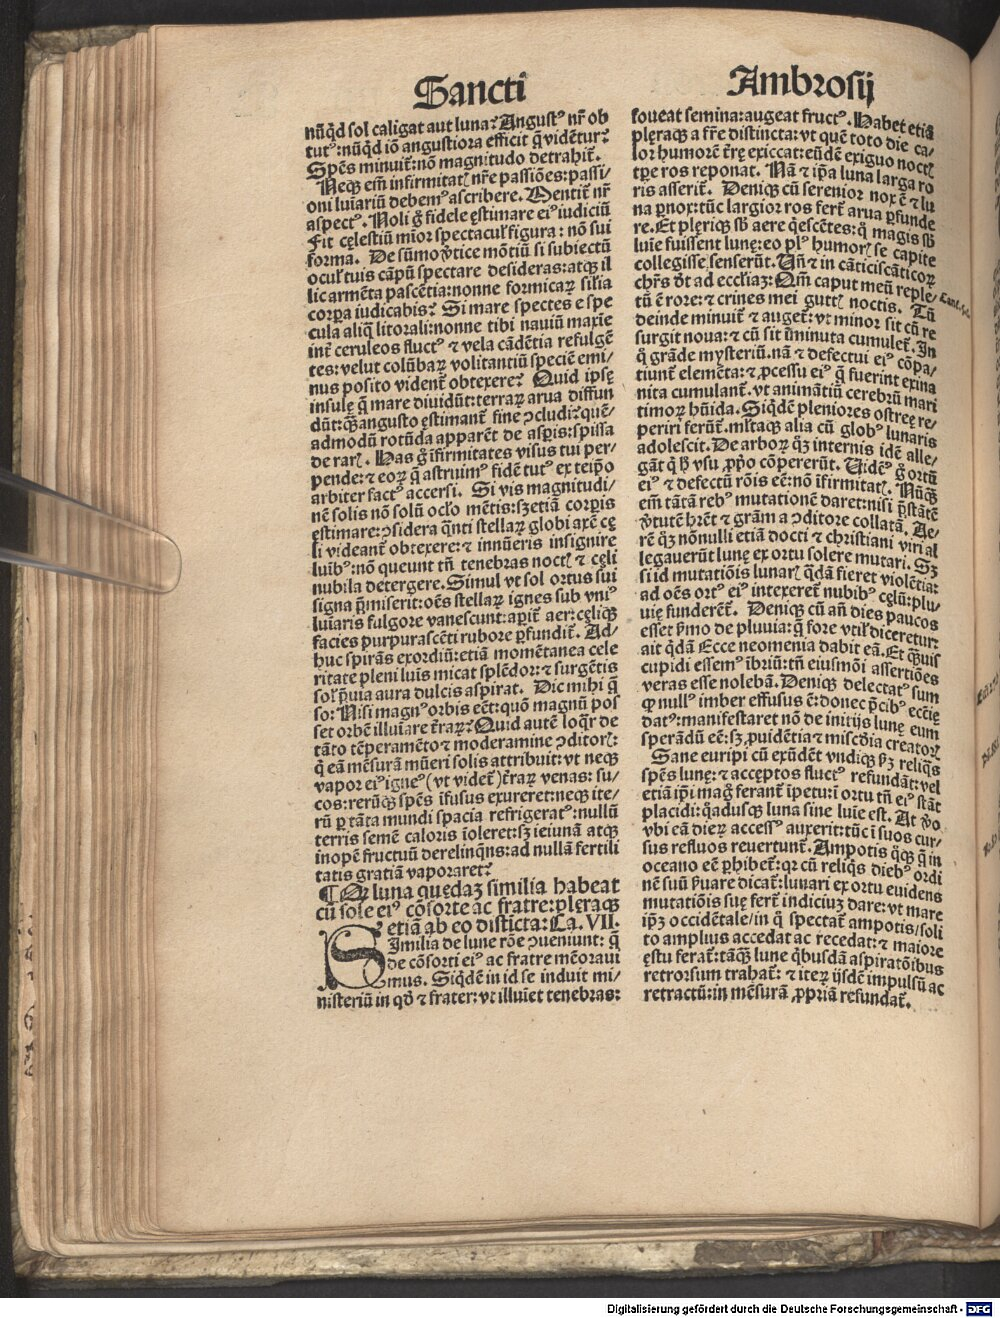 Sancti
nūqd sol caligat aut luna? Angustꝰ nr̄ ob
tutꝰ: nūqd iō angustiora efficit q̄ vidētur?
Spēs minuit᷑: nō magnitudo detrahit᷑.
Neqꝫ em̄ infirmitatꝭ nr̄e passiōes: passi/
oni luīariū debemꝰ ascribere. Mentit᷑ nr̄
aspectꝰ. Noli ḡ fidele ęstimare eiꝰ iudiciū
Fit cęlestiū mīor spectacuľ figura: nō sui
forma. De sūmo ꝟtice mōtiū si subiectū
ocuľ tuis cāpū spectare desideras: atqꝫ il
lic armēta pascētia: nonne formicaꝝ siľia
corꝑa iudicabis? Si mare spectes e spe
cula aliq̄ litorali: nonne tibi nauiū maxīe
int᷑ ceruleos fluctꝰ ⁊ vela cādētia refulgē
tes: velut colūbaꝝ volitantiū speciē emi/
nus posito vident᷑ obtexere? Quid ipsę
insulę q̄ mare diuidūt: terraꝝ arua diffun
dūt: qꝫangusto ęstimant᷑ fine ↄcludi? quē/
admodū rotūda apparēt de asꝑis: spissa
de rarꝭ. Has ḡ īfirmitates visus tui per/
pende: ⁊ eoꝝ q̄ astruimꝰ fidē tutꝰ ex teip̄o
arbiter factꝰ accersi. Si vis magnitudi/
nē solis nō solū ocľo mētis: sꝫ etiā corꝑis
ęstimare: ↄsidera q̄nti stellaꝝ globi axē cę
li videant᷑ obtexere: ⁊ innūeris insignire
luībꝰ: nō queunt tn̄ tenebras noctꝭ ⁊ cęli
nubila detergere. Simul vt sol ortus sui
signa p̄miserit: oēs stellaꝝ ignes sub vniꝰ
luīaris fulgore vanescunt: aꝑit᷑ aer: cęliqꝫ
facies purpurascēti rubore ꝑfundit᷑. Ad/
huc spirās exordiū: etiā momētanea cele
ritate pleni luīs micat splēdor: ⁊ surgētis
soľ p̄uia aura dulcis aspirat. Dic mihi q̄
so: Nisi magnꝰ orbis eēt: quō magnū pos
set orbē illuīare t᷑raꝝ? Quid autē loqr de
tāto tēperamēto ⁊ moderamine ↄditorꝭ:
q̄ eā mēsurā mūeri solis attribuit: vt neqꝫ
vapor eiꝰ igneꝰ (vt videt᷑) t᷑raꝝ venas: su/
cos: rerūqꝫ spēs īfusus exureret: neqꝫ ite/
rū ꝑ tāta mundi spacia refrigeratꝰ: nullū
terris semē caloris īoleret: sꝫ ieiunā atqꝫ
inopē fructuū derelinqns: ad nullā fertili
tatis gratiā vaporaret?
¶ Qꝛ luna quędaꝫ similia habeat
cū sole eiꝰ cōsorte ac fratre: plęraqꝫ
etiā ab eo disticta: Ca. VII.
Similia de lune rōe ↄueniunt: q̄
de cōsorti eiꝰ ac fratre mēoraui
mus. Siqdē in id se induit mi/
nisteriū in qđ ⁊ frater: vt illuīet tenebras:
Ambrosij
foueat semina: augeat fructꝰ. Habet etiā
plęraqꝫ a fr̄e distincta: vt quē toto die ca/
lor humorē t᷑rę exiccat: eūdē exiguo noctꝭ
tꝑe ros reponat. Nā ⁊ ip̄a luna larga ro
ris asserit᷑. Deniqꝫ cū serenior nox ē ⁊ lu
na ꝑnox: tūc largior ros fert᷑ arua ꝑfunde
re. Et plęriqꝫ sb aere qescētes: q̄ magis sb
luīe fuissent lunę: eo plꝰ humorꝭ se capite
collegisse senserūt. Uñ ⁊ in cāticis cāticoꝝ
chr̄s dt ad eccľiaꝫ: Qm̄ caput meū reple/
tū ē rore: ⁊ crines mei guttꝭ noctis. Tū
deinde minuit᷑ ⁊ auget᷑: vt minor sit cū re
surgit noua: ⁊ cū sit īminuta cumulet᷑. In
q̄ grāde mysteriū. nā ⁊ defectui eiꝰ cōpa/
tiunt᷑ elemēta: ⁊ ꝓcessu eiꝰ q̄ fuerint exina
nita cumulant᷑. vt animātiū cerebrū mari
timoꝝ hūida. Siqdē pleniores ostreę re/
periri ferūt᷑. mľtaqꝫ alia cū globꝰ lunaris
adolescit. De arboꝝ qꝫ internis idē alle/
gāt q̄ h vsu ꝓp̄o cōpererūt. Uidemꝰ ḡ ortū
eiꝰ ⁊ defectū rōis eē: nō īfirmitatꝭ. Nūqꝫ
em̄ tātā rebꝰ mutationē daret: nisi p̄stātē
ꝟtutē hr̄et ⁊ grām a ↄditore collatā. Ae/
rē qꝫ nōnulli etiā docti ⁊ christiani viri al
legauerūt lunę ex ortu solere mutari. Sꝫ
si id mutatiōis lunarꝭ qdā fieret violētia:
ad oēs ortꝰ eiꝰ intexeret᷑ nubibꝰ cęlū: plu/
uię funderēt᷑. Deniqꝫ cū añ dies paucos
esset ẜmo de pluuia: q̄ fore vtiľ diceretur:
ait qdā Ecce neomenia dabit eā. Et qꝫuis
cupidi essemꝰ ībriū: tn̄ eiusmōi assertiōes
veras esse nolebā. Deniqꝫ delectatꝰ sum
ꝙ nullꝰ imber effusus ē: donec p̄cibꝰ eccľię
datꝰ: manifestaret nō de initijs lunę eum
sperādū eē: sꝫ ꝓuidētia ⁊ miscďia creatorꝭ
Sane euripi cū exūdēt vndiqꝫ ꝑꝫ reliqs
spēs lunę: ⁊ acceptos fluctꝰ refundāt: vel
etiā ip̄i mag ferant᷑ īpetu: ī ortu tn̄ eiꝰ stāt
placidi: qadusqꝫ luna sine luīe est. At ꝟo
vbi eā dieꝝ accessꝰ auxerit: tūc ī suos cur/
sus refluos reuertunt᷑. Ampotis qꝫ q̄ in
oceano eē ꝑhibet᷑: qꝛ cū reliqs diebꝰ ordi
nē suū ẜuare dicat᷑: lunari ex ortu euidens
mutatiōis suę fert᷑ indiciuꝫ dare: vt mare
ip̄ꝫ occidētale / in q̄ spectat᷑ ampotis / soli
to amplius accedat ac recedat: ⁊ maiore
ęstu ferat᷑: tāqꝫ lune qbusdā aspiratōibus
retrorsum trahat᷑: ⁊ iteꝝ ijsdē impulsū ac
retractū: in mēsurā ꝓpriā refundat᷑.
Cant. 5.
Digitalisierung gefördert durch die Deutsche Forschungsgemeinschaft - DFG